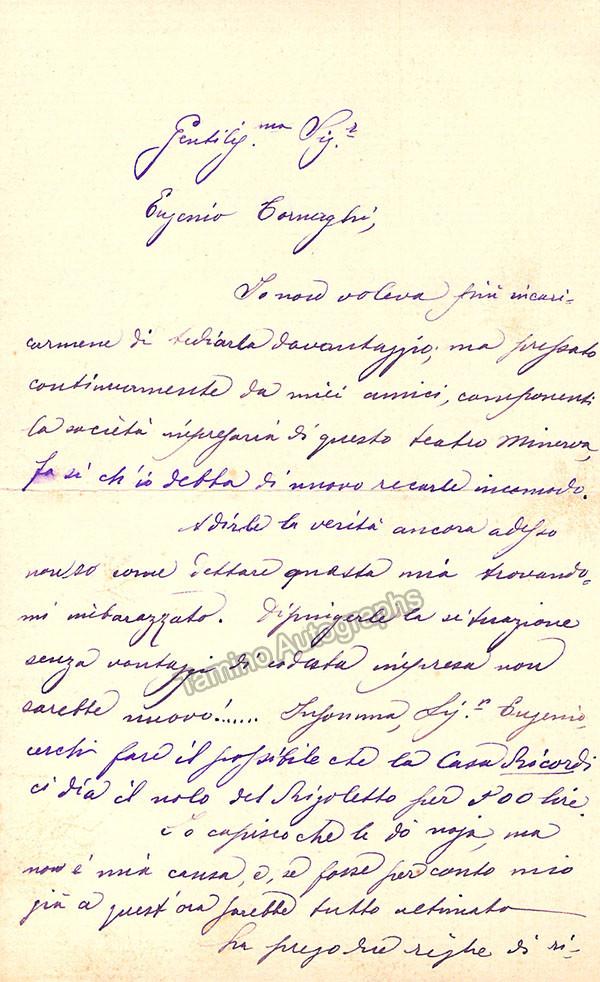 Gentiliss.ma Sig.r
Eugenio Tornaghi,
Io non voleva più incari-
carmene di tediarla davantaggio; ma pressato
continuamente da miei amici, componenti
la società impresaria di questo teatro Minerva,
fa si ch'io debba di nuovo recarle incomodo.
A dirle la verità ancora adesso
non so come dettare questa mia trovando-
mi imbarazzato. Dipingerle la situazione
senza vantaggi di codesta impresa non
sarebbe nuovo!...... Insomma, Sig.r Eugenio,
cerchi fare il possibile che la Casa Ricordi
ci dia il nolo del Rigoletto per 800 lire.
Io capisco che le dò noja, ma
non è mia causa, e, se fosse per conto mio
già a quest'ora sarebbe tutto ultimato
La prego due righe di ri-
Tamino Autographs